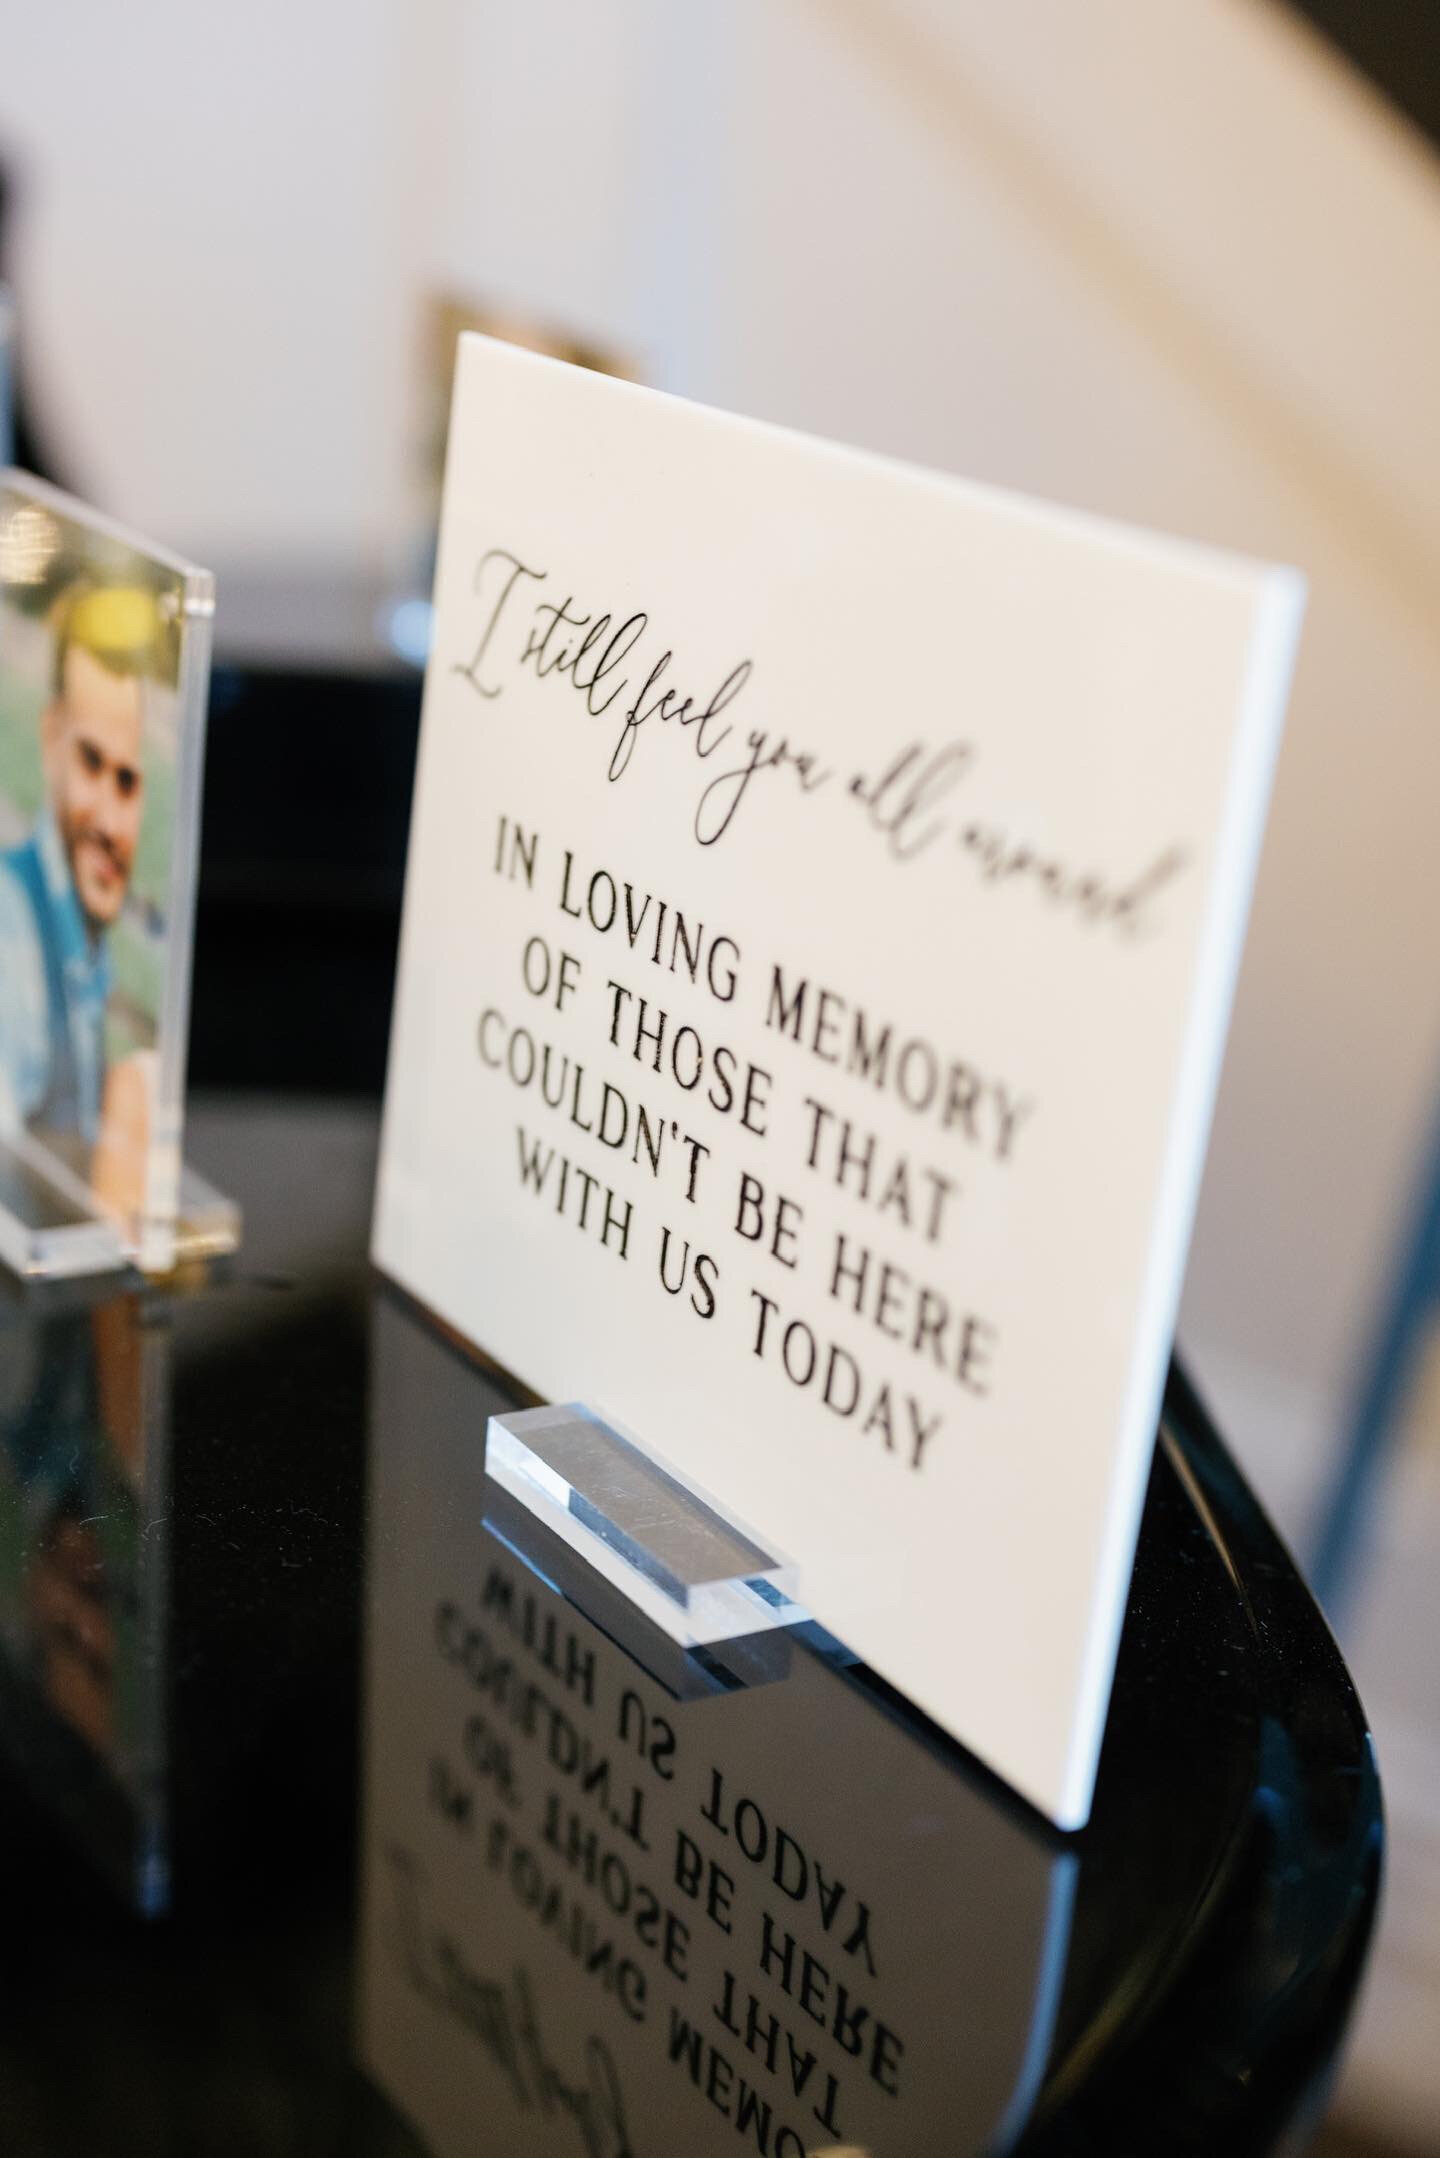 I still feel you all around
IN LOVING MEMORY
OF THOSE THAT
COULDN'T BE HERE
WITH US TODAY